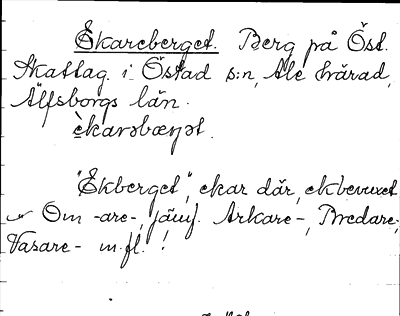 Ekareberget. Berg på Öst.
Skattag. i Östad s:n, Ale härad,
Älfsborgs län.
èkarəbærjət.
"Ekberget", ekar där, ekbevuxet
Om -are-, jämf. Arkare-, Bredare-,
Vasare- m.fl. !